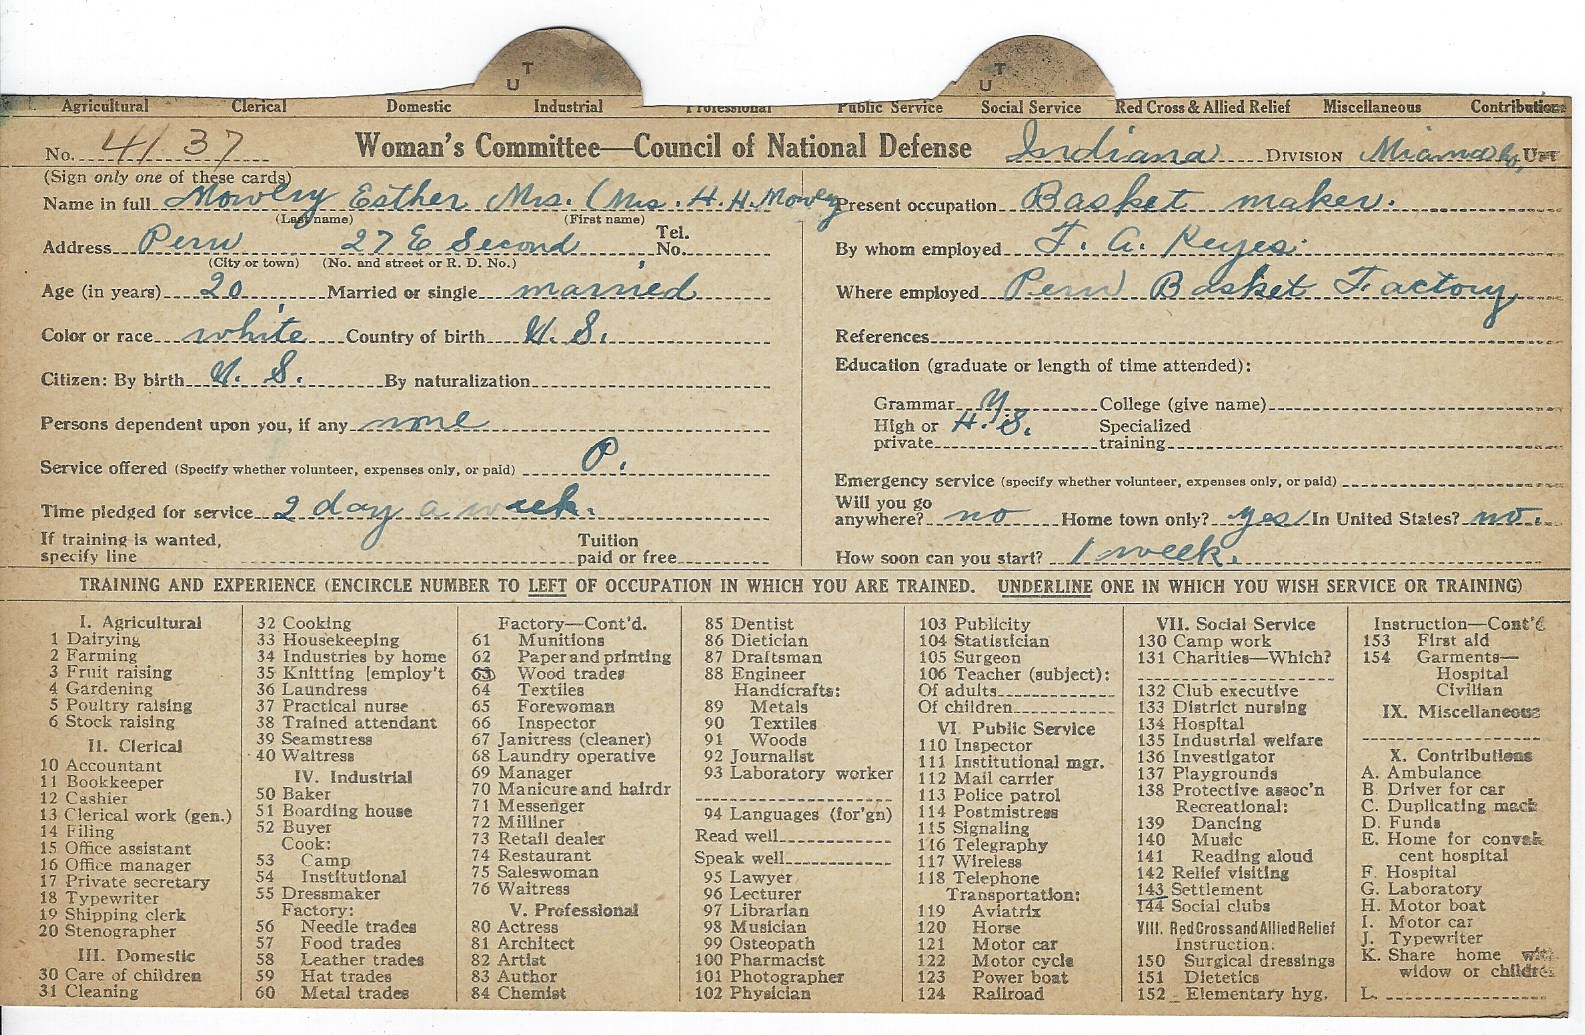 T
U
T
U
Agricultural Clerical Domestic Industrial Professional Public Service Social Service Red Cross & Allied Relief Miscellaneous Contributions
No. 4137 Woman's Committee—Council of National Defense Indiana DIVISION Miami Co, UNIT
(Sign only one of these cards)
Name in full Mowery Esther Mrs. (Mrs. H. H. Mowery
(Last name) (First name)
Address Peru 27 E Second Tel. No.
(City or town) (No. and street or R. D. No.)
Age (in years) 20 Married or single married
Color or race white Country of birth U. S.
Citizen: By birth U. S. By naturalization
Persons dependent upon you, if any none
Service offered (Specify whether volunteer, expenses only, or paid) P.
Time pledged for service 2 day a week.
If training is wanted, specify line Tuition paid or free
Present occupation Basket maker.
By whom employed F. A. Keyes.
Where employed Peru Basket Factory
References
Education (graduate or length of time attended):
Grammar y College (give name)
High or private H. S. Specialized training
Emergency service (specify whether volunteer, expenses only, or paid)
Will you go anywhere? no Home town only? yes In United States? no.
How soon can you start? 1 week.
TRAINING AND EXPERIENCE (ENCIRCLE NUMBER TO LEFT OF OCCUPATION IN WHICH YOU ARE TRAINED. UNDERLINE ONE IN WHICH YOU WISH SERVICE OR TRAINING)
I. Agricultural
1 Dairying
2 Farming
3 Fruit raising
4 Gardening
5 Poultry raising
6 Stock raising
II. Clerical
10 Accountant
11 Bookkeeper
12 Cashier
13 Clerical work (gen.)
14 Filing
15 Office assistant
16 Office manager
17 Private secretary
18 Typewriter
19 Shipping clerk
20 Stenographer
III. Domestic
30 Care of children
31 Cleaning
32 Cooking
33 Housekeeping
34 Industries by home
35 Knitting [employ't
36 Laundress
37 Practical nurse
38 Trained attendant
39 Seamstress
40 Waitress
IV. Industrial
50 Baker
51 Boarding house
52 Buyer
Cook:
53 Camp
54 Institutional
55 Dressmaker
Factory:
56 Needle trades
57 Food trades
58 Leather trades
59 Hat trades
60 Metal trades
Factory—Cont'd.
61 Munitions
62 Paper and printing
63 Wood trades
64 Textiles
65 Forewoman
66 Inspector
67 Janitress (cleaner)
68 Laundry operative
69 Manager
70 Manicure and hairdr
71 Messenger
72 Milliner
73 Retail dealer
74 Restaurant
75 Saleswoman
76 Waitress
V. Professional
80 Actress
81 Architect
82 Artist
83 Author
84 Chemist
85 Dentist
86 Dietician
87 Draftsman
88 Engineer
Handicrafts:
89 Metals
90 Textiles
91 Woods
92 Journalist
93 Laboratory worker
94 Languages (for'gn)
Read well
Speak well
95 Lawyer
96 Lecturer
97 Librarian
98 Musician
99 Osteopath
100 Pharmacist
101 Photographer
102 Physician
103 Publicity
104 Statistician
105 Surgeon
106 Teacher (subject):
Of adults
Of children
VI. Public Service
110 Inspector
111 Institutional mgr.
112 Mail carrier
113 Police patrol
114 Postmistress
115 Signaling
116 Telegraphy
117 Wireless
118 Telephone
Transportation:
119 Aviatrix
120 Horse
121 Motor car
122 Motor cycle
123 Power boat
124 Railroad
VII. Social Service
130 Camp work
131 Charities—Which?
132 Club executive
133 District nursing
134 Hospital
135 Industrial welfare
136 Investigator
137 Playgrounds
138 Protective assoc'n
Recreational:
139 Dancing
140 Music
141 Reading aloud
142 Relief visiting
143 Settlement
144 Social clubs
VIII. Red Cross and Allied Relief
Instruction:
150 Surgical dressings
151 Dietetics
152 Elementary hyg.
Instruction—Cont'd
153 First aid
154 Garments—
Hospital
Civilian
IX. Miscellaneous
X. Contributions
A. Ambulance
B. Driver for car
C. Duplicating mach
D. Funds
E. Home for conval
cent hospital
F. Hospital
G. Laboratory
H. Motor boat
I. Motor car
J. Typewriter
K. Share home with
widow or children
L.